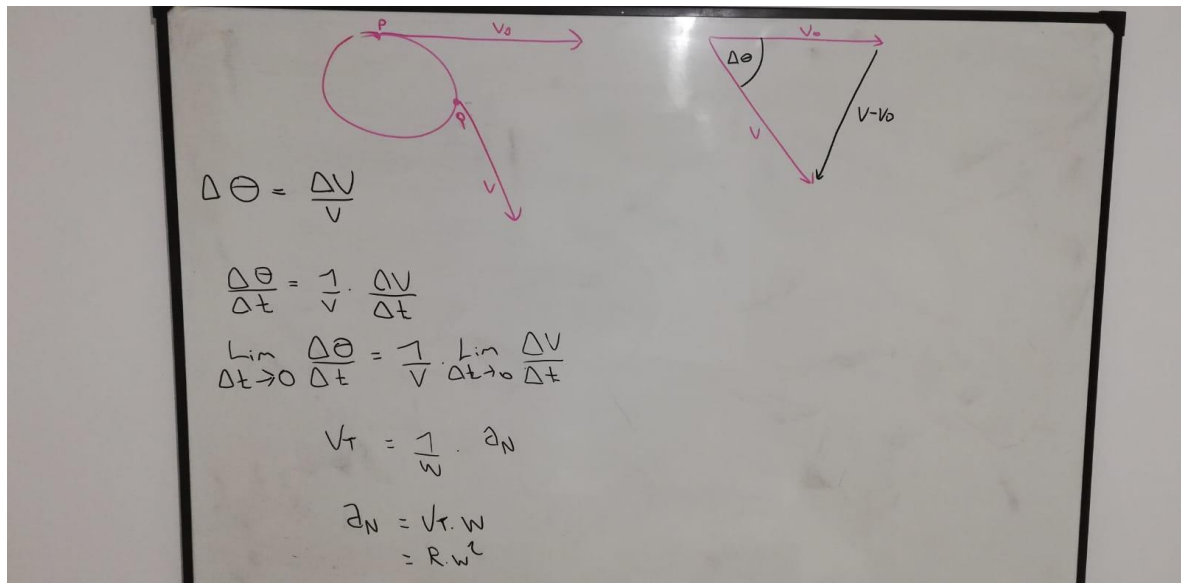 P
V₀
Q
V
V₀
Δθ
V
V-V₀
Δθ = ΔV/V
Δθ/Δt = 1/V · ΔV/Δt
Lim Δt→0 Δθ/Δt = 1/V · Lim Δt→0 ΔV/Δt
V_T = 1/W · a_N
a_N = V_T · W
= R·W²